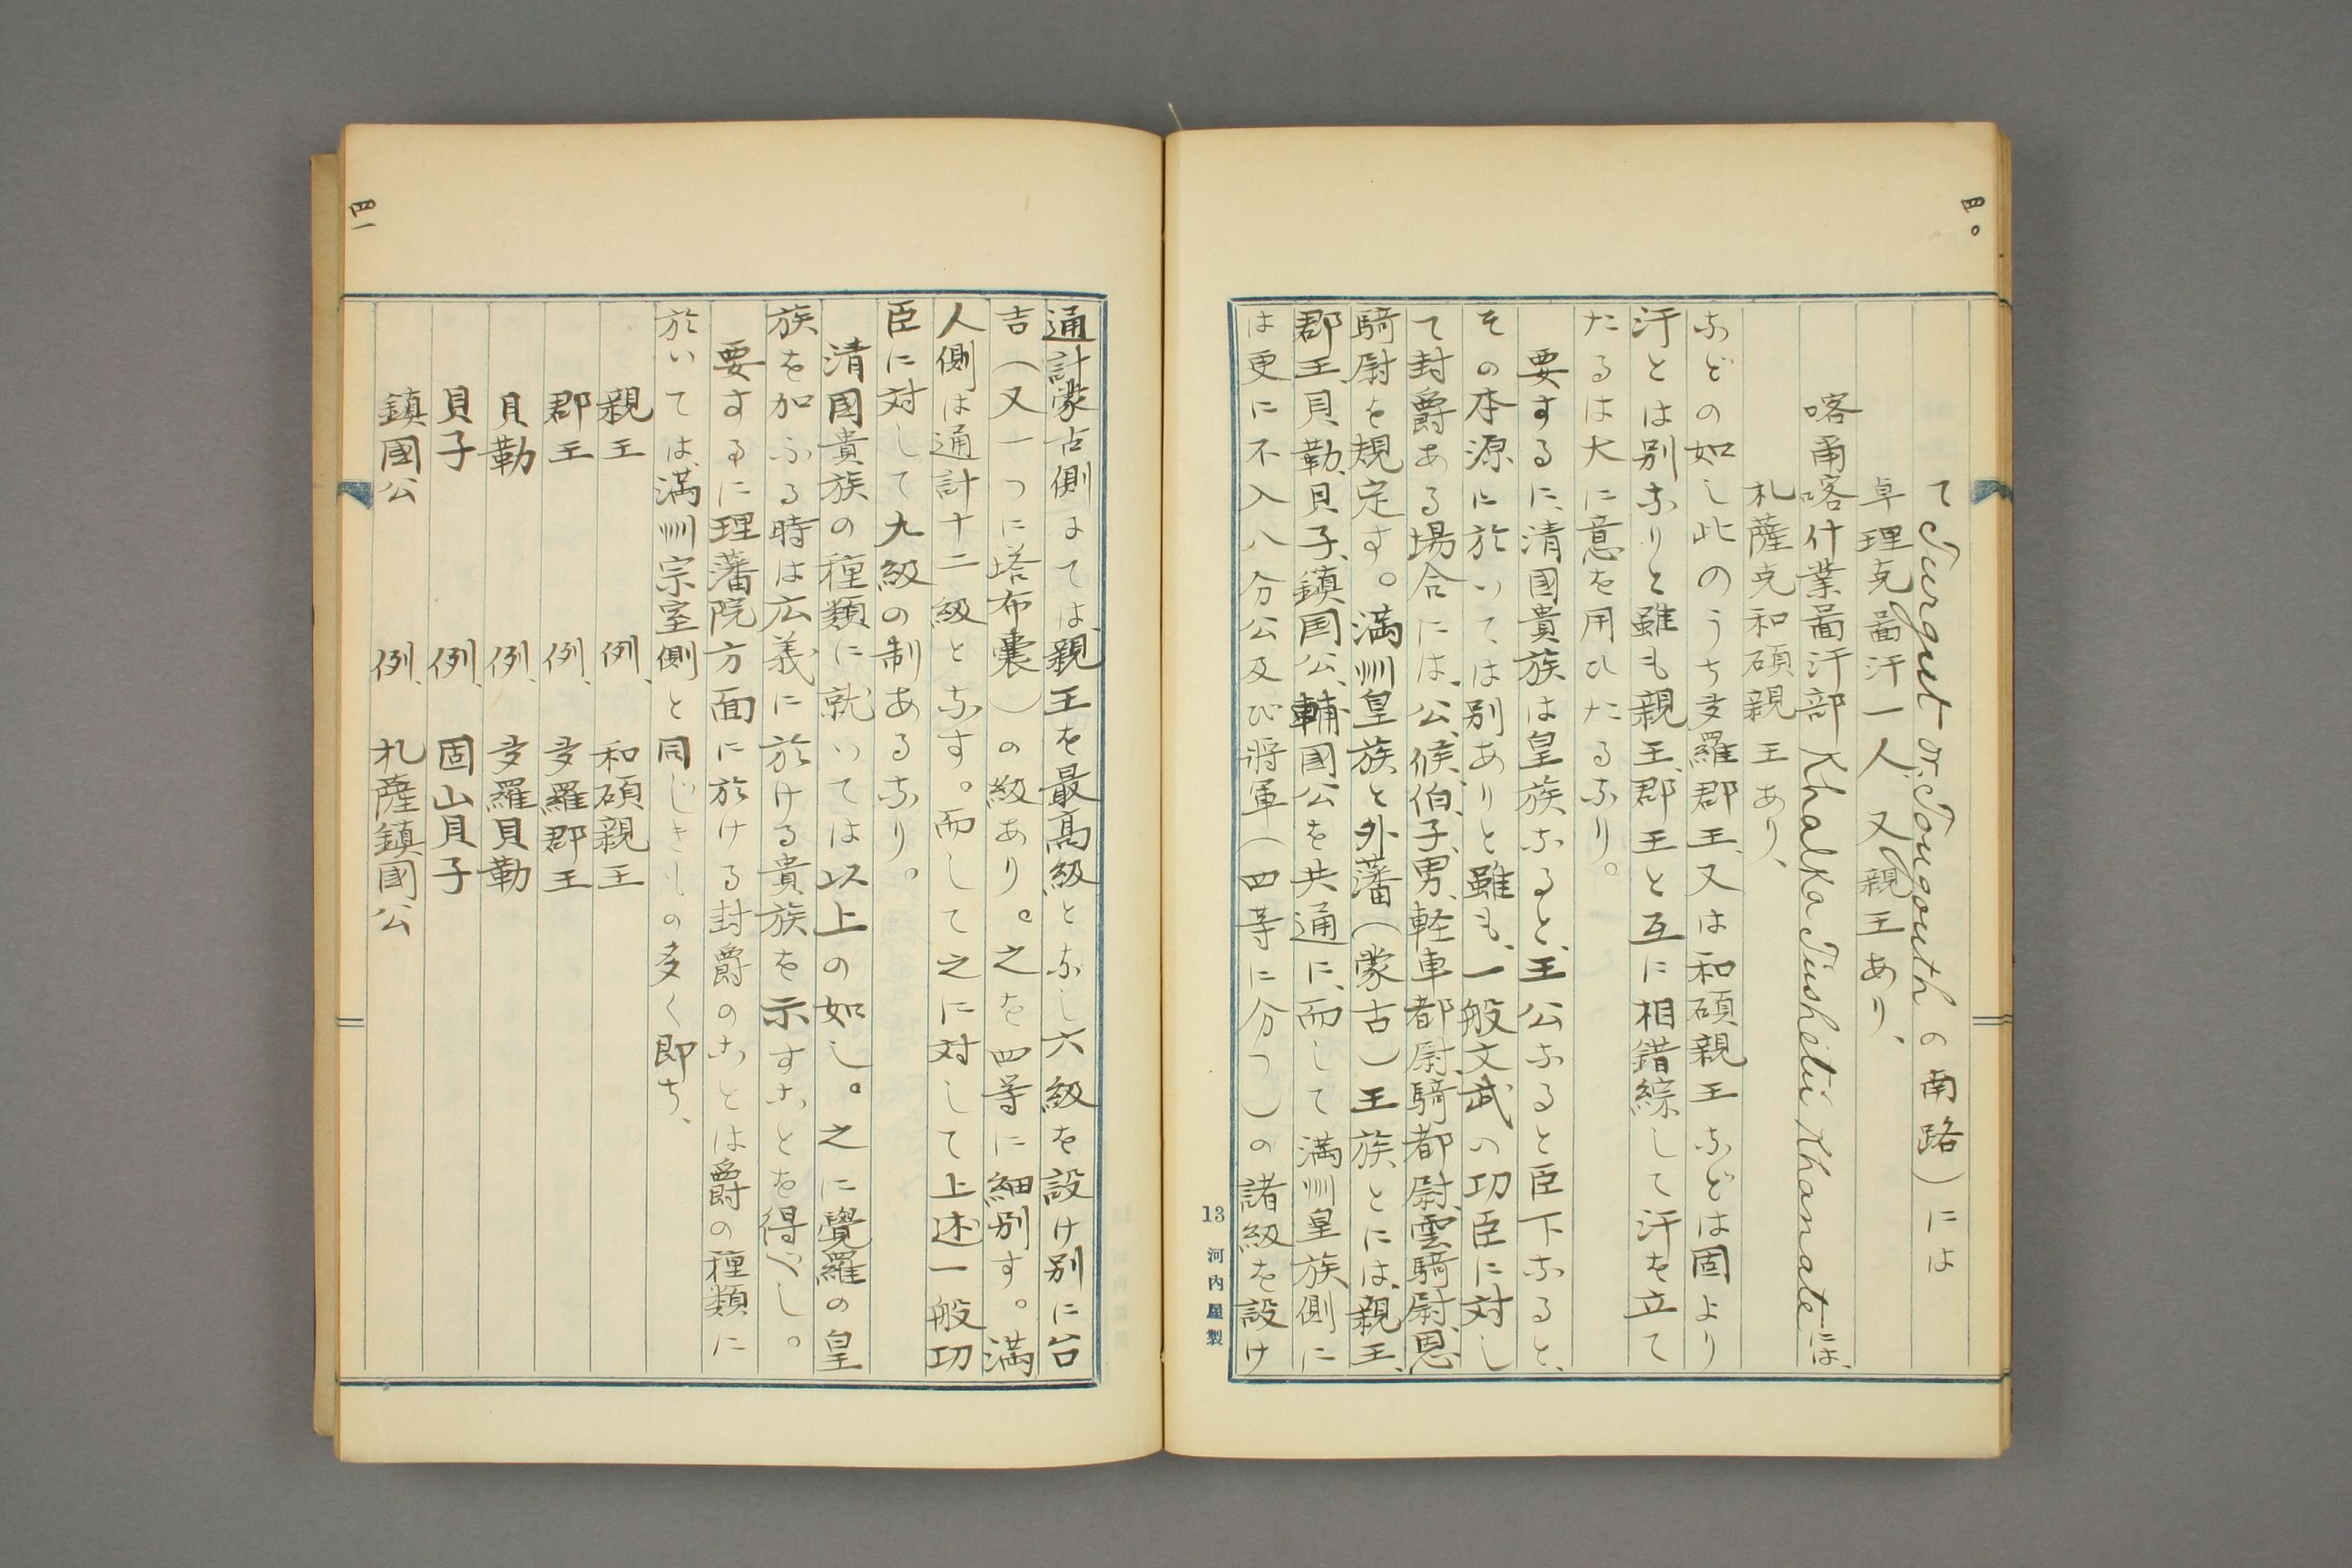 四〇
て Turgut or. Tougouth の南路）には
卓理克啚汗一人　又親王あり、
喀甭喀什業啚汗部 Khalka Tiushetu Khanate には、
札薩克和碩親王あり、
などの如し此のうち多羅郡王、又は和碩親王などは固より
汗とは別なりと雖も親王、郡王と互に相錯綜して汗を立て
たるは大に意を用ひたるなり。
要するに、清國貴族は皇族なると、王公なると臣下なると、
その本源に於いては別ありと雖も、一般文武の功臣に対し
て封爵ある場合には、公、候、伯、子、男、軽車都尉、騎都尉、雲騎尉、恩
騎尉を規定す。満洲皇族と外藩（蒙古）王族とには、親王、
郡王、貝勒、貝子、鎮国公、輔國公を共通に、而して満洲皇族側に
は更に不入八分公及び將軍（四等に分つ）の諸級を設け
13 河内屋製
四一
通計蒙古側まては親王を最高級となし六級を設け別に台
吉（又一つに塔布嚢）の級あり。之を四等に細別す。満
人側は通計十二級となす。而して之に対して上述一般功
臣に対して九級の制あるなり。
清國貴族の種類に就いては以上の如し。之に覺羅の皇
族を加ふる時は広義に於ける貴族を示すことを得べし。
要するに理藩院方面に於ける封爵のことは爵の種類に
於いては、満洲宗室側と同じきもの多く即ち、
親王　例、　和碩親王
郡王　例、　多羅郡王
貝勒　例、　多羅貝勒
貝子　例、　固山貝子
鎮國公　例、　札薩鎮國公